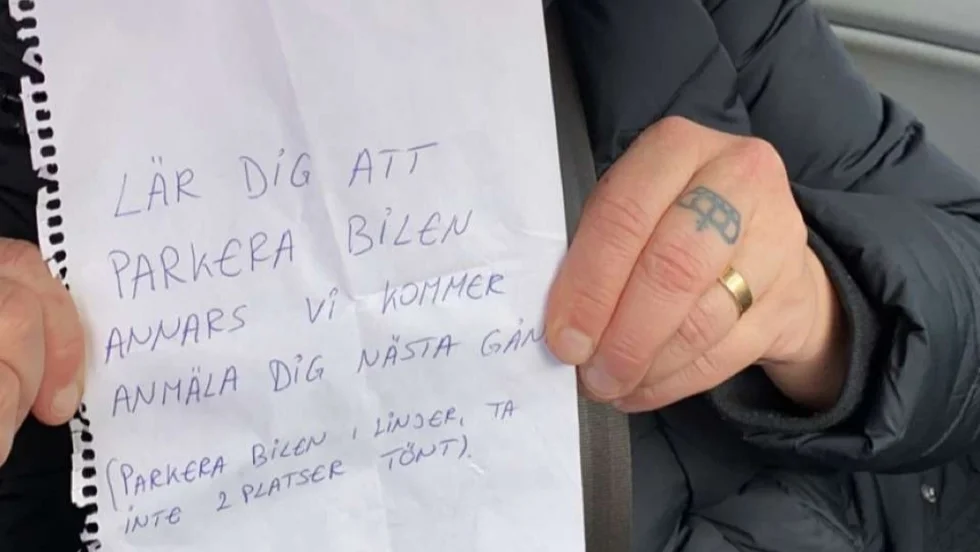 LÄR DIG ATT
PARKERA BILEN
ANNARS VI KOMMER
ANMÄLA DIG NÄSTA GÅN
(PARKERA BILEN I LINJER, TA
INTE 2 PLATSER TÖNT).